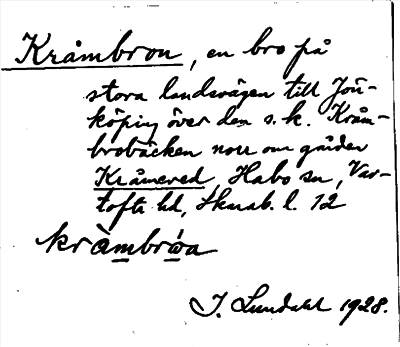 Kråmbron, en bro på
stora landsvägen till Jön-
köping över den s.k. Kråm-
brobäcken norr om gården
Kråmered, Habo sn, Var-
tofta hd, Skarab. l. 12
kràmbrẃa
J. Lundahl 1928.